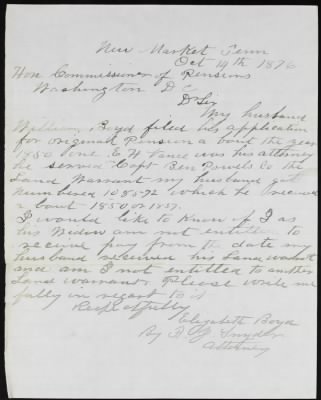 New Market Tenn
Oct 14th 1876
Hon Commissioner of Pensions
Washington D C
D Sir
My husband
William Boyd filed his application
for original Pension a bout the year
1850 one E H Vance was his attorney
he served Capt Ben Powels Co the
Land Warrant my husband got
Numbered 108572 which he received
a bout 1850 or 1857.
I would like to know if I as
his Widow am not entitled to
receive pay from the date my
husband received his Land warrant
and am I not entitled to another
Land warrant Please write me
fully in regard to it
Respectfully
Elizabeth Boyd
By Snyder
Attorney